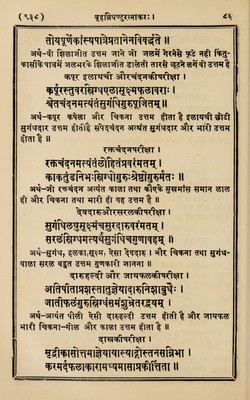 (९३८) बृहन्निघण्टुरत्नाकरः। ८६
तोयपूर्णेकांस्यपात्रेप्रतानेनविवर्द्धते ॥
अर्थ-वी शिलाजीत उत्तम जाने जो जलमें गेरनेसे फूटे नहीं किंतु-
कांसीके पात्रमें जलभरके शिलाजीत डालेतो तारसे छूटने लगें वो उत्तम है
कपूर इलायची औरचंदनकीपरीक्षा।
कर्पूरस्तुवरस्निग्धएलासूक्ष्मफलावराः।
श्वेतचंदनमत्यंतसुगंधिगुरुपूजितम् ॥
अर्थ-कपूर कषेला और चिकना उत्तम होता है इलायची छोटी
सुगंधदार उत्तम होतीहै सपेदचंदन अत्यंत सुगंधदार और भारी उत्तम
होता है ॥
रक्तचंदनपरीक्षा।
रक्तचंदनमत्यंतलोहितंप्रवरंमतम्।
काकतुंडनिभःस्निग्धोगुरुःश्रेष्ठोगुरुर्मतः ॥
अर्थ-जो रक्तचंदन अत्यंत काला तथा कौएके मुखमांस समान लाल
हो और चिकना तथा भारी हो वह उत्तम है ।
देवदारुऔरसरलकीपरीक्षा।
सुगंधिलघुसूक्ष्मंचसुरदारुवरंमतम्।
सरलंस्निग्धमत्यर्थंसुगंधिचगुणावहम् ॥
अर्थ-सुगंध, हलका,सूक्ष्म, ऐसा देवदारु । और चिकना तथा सुगंध-
वाला सरल बहुत उत्तम गुणकारी जानना ॥
दारुहल्दी और जायफलकीपरीक्षा।
अतिपीताप्रशस्तातुज्ञेयादारुनिशाबुधैः।
जातीफलंगुरुस्निग्धंसमंशुभ्रेतरद्वयम् ॥
अर्थ-अत्यंत पीली ऐसी दारुहल्दी उत्तम होती है और जायफल
भारी चिकना-गोल और काला उत्तम होता है ॥
दाखकीपरीक्षा।
मृद्वीकासोत्तमाज्ञेयायास्याद्गोस्तनसन्निभा।
करमर्दफलाकारामध्यमासाप्रकीर्त्तिता ॥